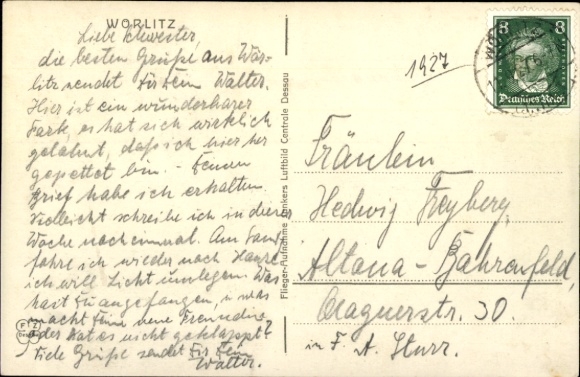 WÖRLITZ
Liebe Schwester,
die besten Grüße aus Wör-
litz sendet Dir Dein Walter.
Hier ist ein wunderbarer
Park, es hat sich wirklich
gelohnt, daß ich hier her
gegettet bin. - Deinen
Brief habe ich erhalten.
Vielleicht schreibe ich in dieser
Woche noch einmal. Am
fahre ich wieder nach Hause
ich will Licht umlegen. Was
hast Du angefangen, u. was
macht Deine neue Freundin
oder hat es nicht geklappt?
Viele Grüße sendet Dir Dein
Walter.
Flieger-Aufnahme Junkers Luftbild Centrale Dessau
1927
8 8
Deutsches Reich
Fräulein
Hedwig Freyberg,
Altona-Bahrenfeld,
30.
in F. A. Sturr.
F Z